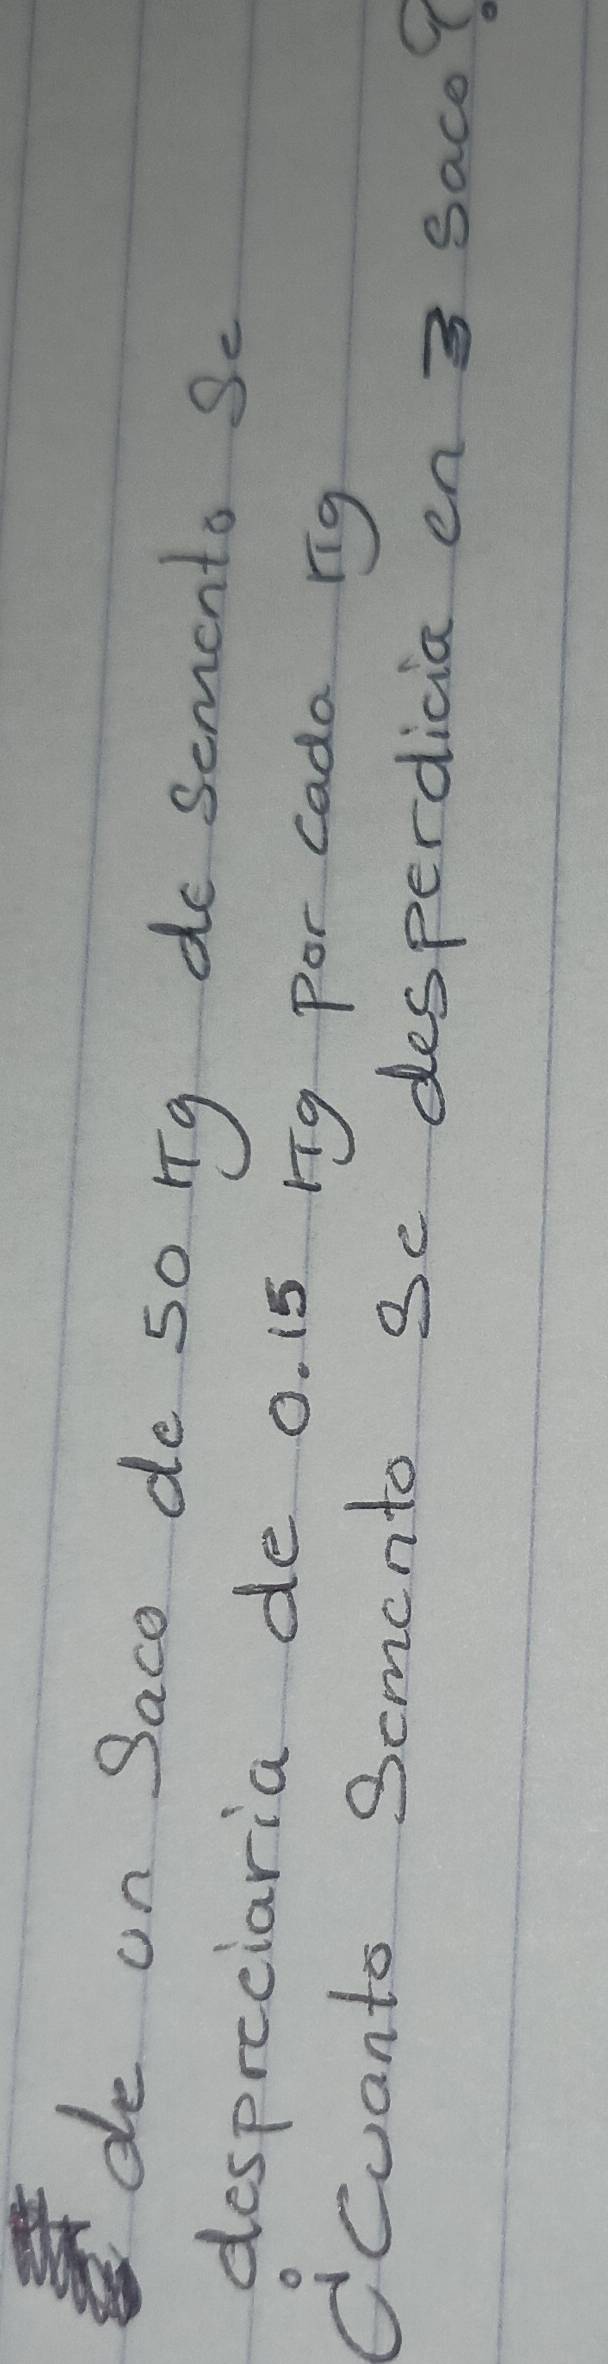 de un saco de 50 Kg de semento se
despreciaria de 0.15 Kg por cada Kg
¿Cuanto semento se desperdicia en 3 saco?